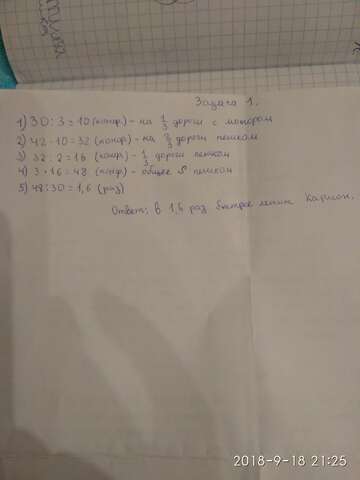 Задача 1.
1) 30 : 3 = 10 (конф.) - на 1/3 дороги с мотором
2) 42 - 10 = 32 (конф.) - на 2/3 дороги пешком
3) 32 : 2 = 16 (конф.) - 1/3 дороги пешком
4) 3 • 16 = 48 (конф) - общее S пешком
5) 48 : 30 = 1,6 (раз)
Ответ: в 1,6 раз быстрее летит Карлсон.
2018-9-18 21:25